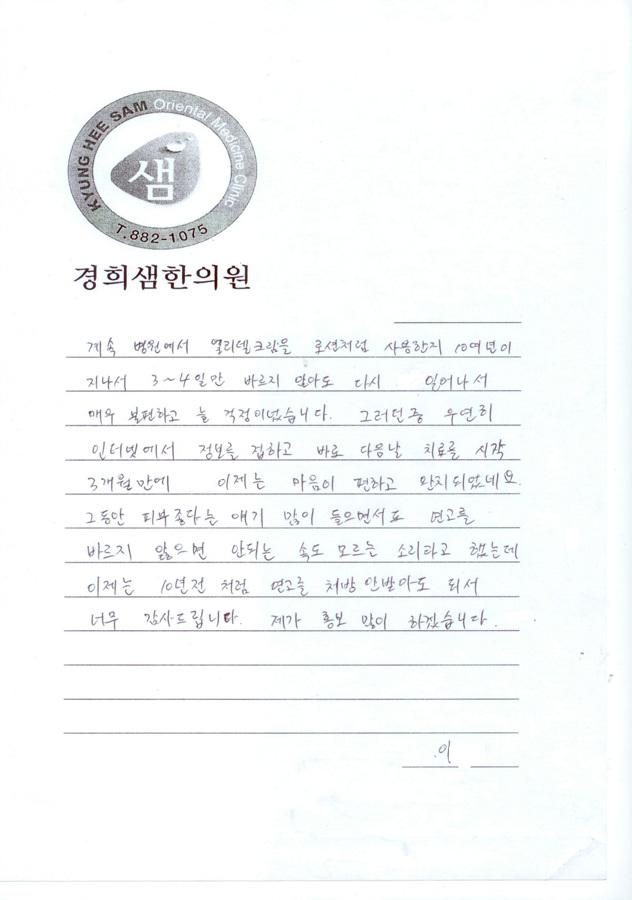 KYUNG HEE SAM Oriental Medicine Clinic
샘
T.882-1075
경희샘한의원
계속 병원에서 엘리델크림을 로션처럼 사용한지 10여년이
지나서 3~4일만 바르지 않아도 다시 일어나서
매우 불편하고 늘 걱정이었습니다. 그러던중 우연히
인터넷에서 정보를 접하고 바로 다음날 치료를 시작
3개월만에 이제는 마음이 편하고 완치되었네요.
그동안 피부좋다는 얘기 많이 들으면서도 연고를
바르지 않으면 안되는 속도 모르는 소리라고 했는데
이제는 10년전 처럼 연고를 처방 안받아도 되서
너무 감사드립니다. 제가 홍보 많이 하겠습니다.
이